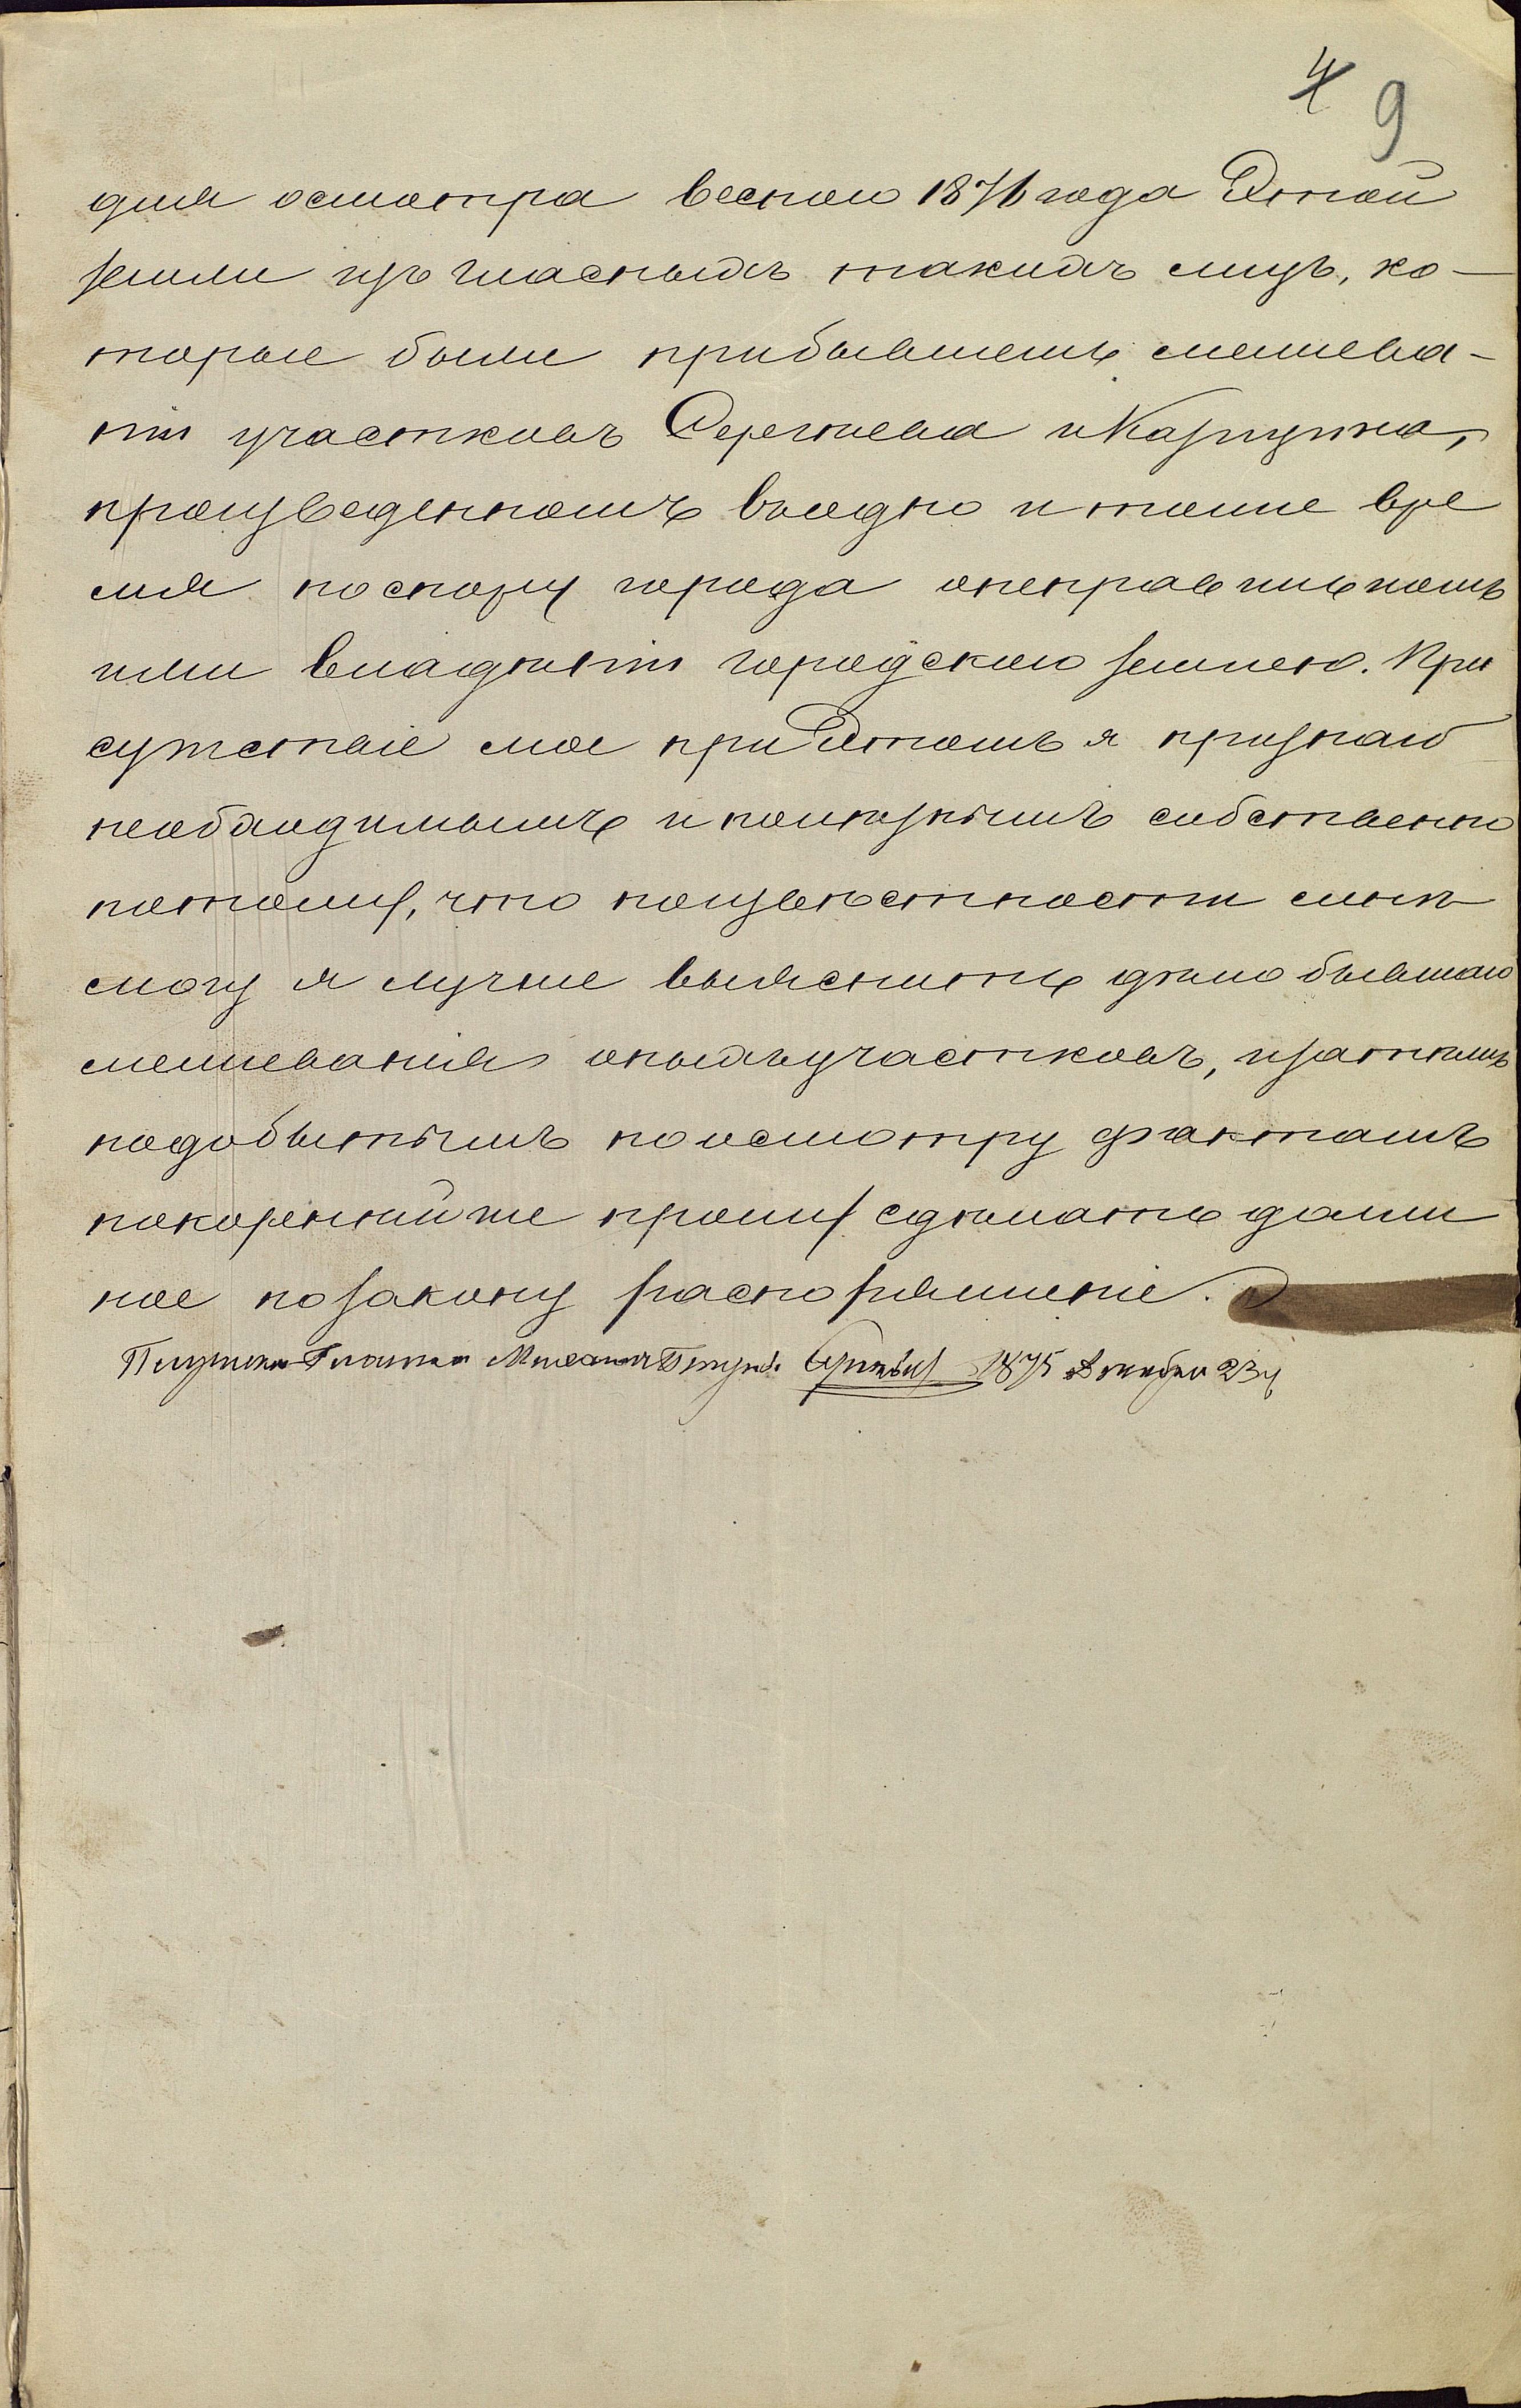 4 9
для осмотра весною 1876 года Этой
земли изъ гласныхъ такихъ лицъ, ко-
торые были прибывшемъ межева-
ніи участковъ Сергѣева и Карпухина,
произведенномъ въ одно и тоже вре
мя поспору города онеправильномъ
ими владѣніи городскою землею. При
сутствіе мое при Этомъ я признаю
необходимымъ и полезнымъ собственно
потому, что поизвѣстности мнѣ
могу я лучше выяснить дѣло бывшаго
межеванія оныхъ участковъ, и затѣмъ
подобытымъ поосмотру фактамъ
покорнѣйше прошу сдѣлать долж
ное позакону распоряженіе.
Гласный Михаилъ 1875 Декабря 23 ч